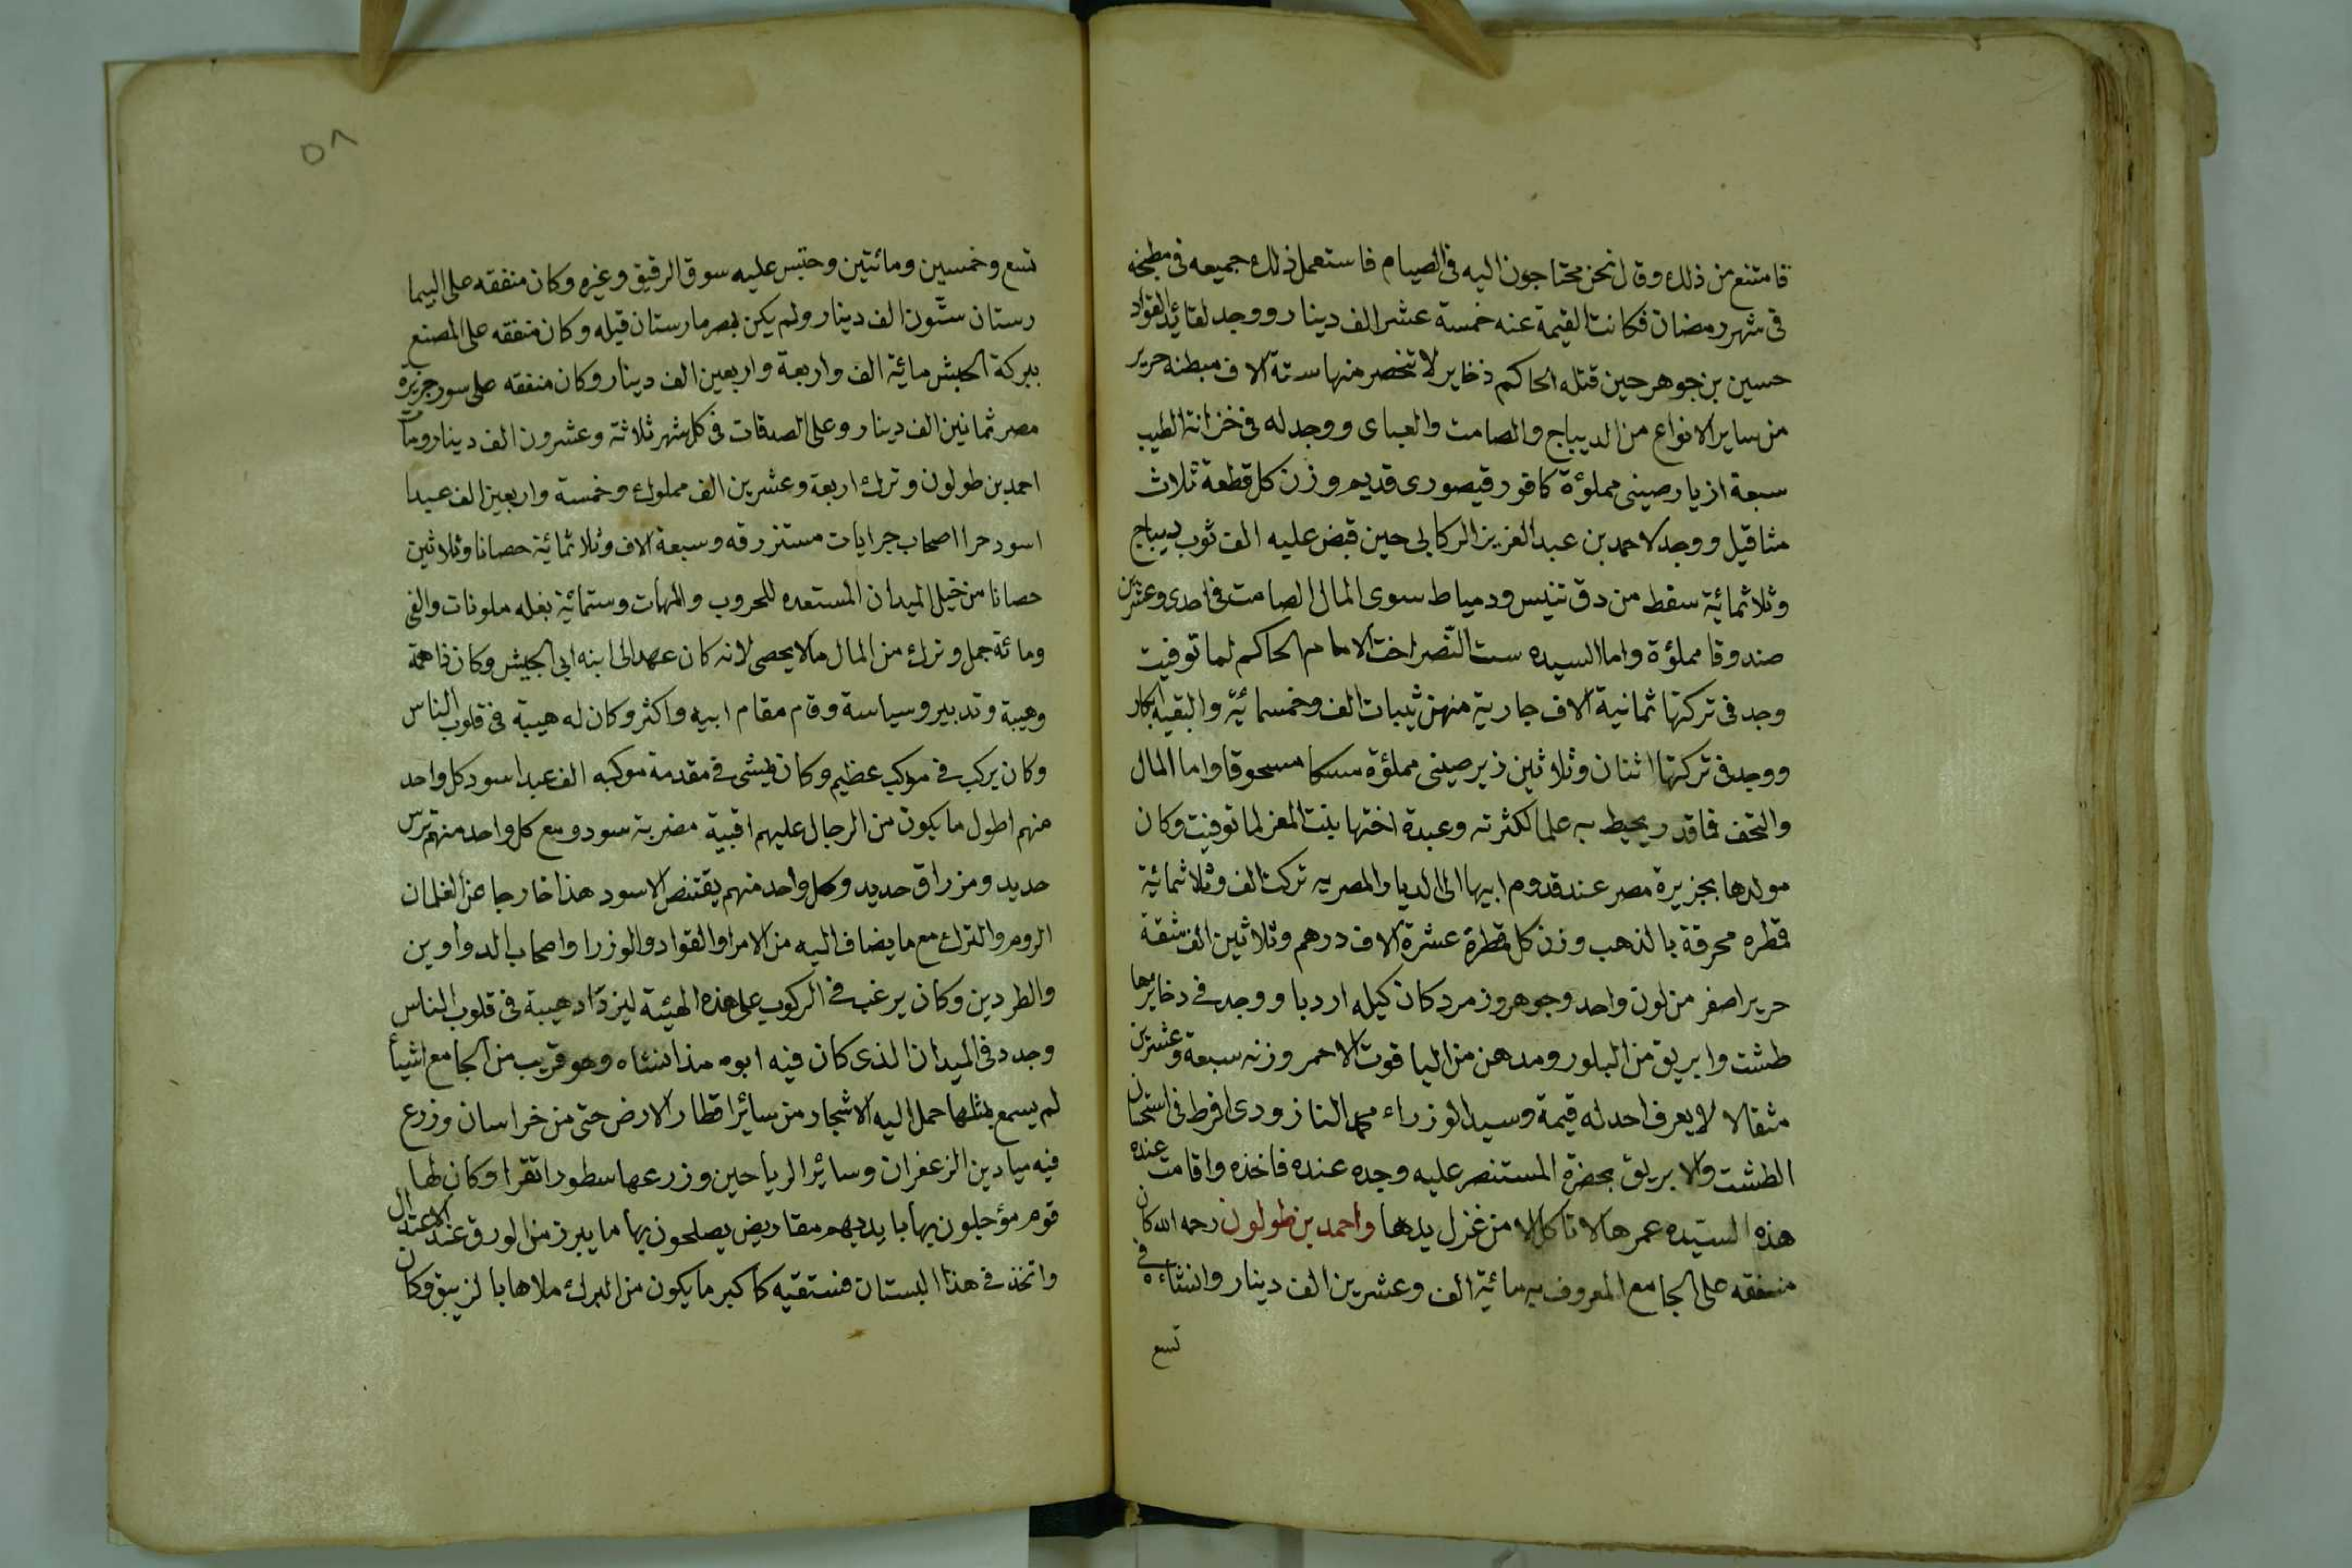 فامتنع من ذلك وقال نحن محتاجون اليه في الصيام فاستعمل ذلك جميعه في مطبخه
في شهر رمضان فكانت القيمة عنه خمسة عشر الف دينار ووجد لقائد القواد
حسين بن جوهر حين قتله الحاكم ذخاير لا تنحصر منها ستة الاف مبطنه حرير
من ساير الانواع من الديباج والصامت والعبابى ووجد له في خزانة الطيب
سبعة ازيار صينى مملؤة كافور قيصورى قديم وزن كل قطعة ثلاث
مثاقيل ووجد لاحمد بن عبد العزيز الركابى حين قبض عليه الف ثوب ديباج
وثلاثمائية سقط من دق تنيس ودمياط سوى المال الصامت في احدى وعشرين
صندوقا مملؤة واما السيده ست النصر اخت الامام الحاكم لما توفيت
وجد في تركتها ثمانية الاف جارية منهن ثيبات الف وخمسمائية والبقية ابكار
ووجد في تركتها اثنان وثلاثين زير صينى مملؤة مسكا مسحوقا واما المال
والتحف فما قدر يحيط به علما لكثرته وعبدة اختها بنت المعز لما توفيت وكان
مولدها بجزيرة مصر عند قدوم ابيها الى الديار المصريه تركت الف وثلاثمائية
قمطره محرقة بالذهب وزن كل قمطرة عشرة الاف درهم وثلاثين الف شقة
حرير اصفر من لون واحد وجوهر وزمرد كان كيله اردبا ووجد في دخايرها
طشت وابريق من البلور ومدهن من الياقوت الاحمر وزنه سبعة وعشرين
مثقالا لا يعرف احد له قيمة وسيد الوزراء محمد النازورى افرط في استحسان
الطشت والابريق بحضرة المستنصر عليه وجده عنده فاخذه واقامت عنده
هذه السيده عمرها لا تاكل الا من غزل يدها واحمد بن طولون رحمه الله كان
منفقه على الجامع المعروف به مائية الف وعشرين الف دينار وانشاءه في
تسع
٥٨
تسع وخمسين ومائتين وحبس عليه سوق الرقيق وغيره وكان منفقه على البيما
رستان ستون الف دينار ولم يكن بمصر مارستان قبله وكان منفقه على المصنع
ببركة الحبش مائية الف واربعة واربعين الف دينار وكان منفقه على سور جزيرة
مصر ثمانين الف دينار وعلى الصدقات في كل شهر ثلاثة وعشرون الف دينار ومات
احمد بن طولون وترك اربعة وعشرين الف مملوك وخمسة واربعين الف عبدا
اسود حرا اصحاب جرايات مستزرقه وسبعة الاف وثلاثمائية حصانا وثلاثين
حصانا من خيل الميدان المستعده للحروب والمهات وستمائية بغله ملونات والفى
ومائة جمل وترك من المال ما لا يحصى لانه كان عهد الى ابنه ابى الجيش وكان ذا همة
وهيبة وتدبير وسياسة وقام مقام ابيه واكثر وكان له هيبة في قلوب الناس
وكان يركب في موكب عظيم وكان يمشى في مقدمة موكبه الف عبد اسود كل واحد
منهم اطول ما يكون من الرجال عليهم اقبية مضربة سود ومع كل واحد منهم ترس
حديد ومزراق حديد وكل واحد منهم يقتنص الاسود هذا خارجا عن الغلمان
الروم والترك مع ما يضاف اليه من الامرا والقواد والوزرا واصحاب الدواوين
والطردين وكان يرغب في الركوب على هذه الهيئة ليزداد هيبة في قلوب الناس
وجدد في الميدان الذى كان فيه ابوه منذ انشاه وهو قريب من الجامع اشيأ
لم يسمع بمثلها حمل اليه الاشجار من سائر اقطار الارض حتى من خراسان وزرع
فيه ميادين الزعفران وسائر الرياحين وزرعها سطورا تقرا وكان لها
قوم مؤجلون بها بايديهم مقاريض يصلحون بها ما يبرز من الورق عند الاعتدال
واتخذ في هذا البستان فستقيه كاكبر ما يكون من البرك ملاها بالزيبق وكان